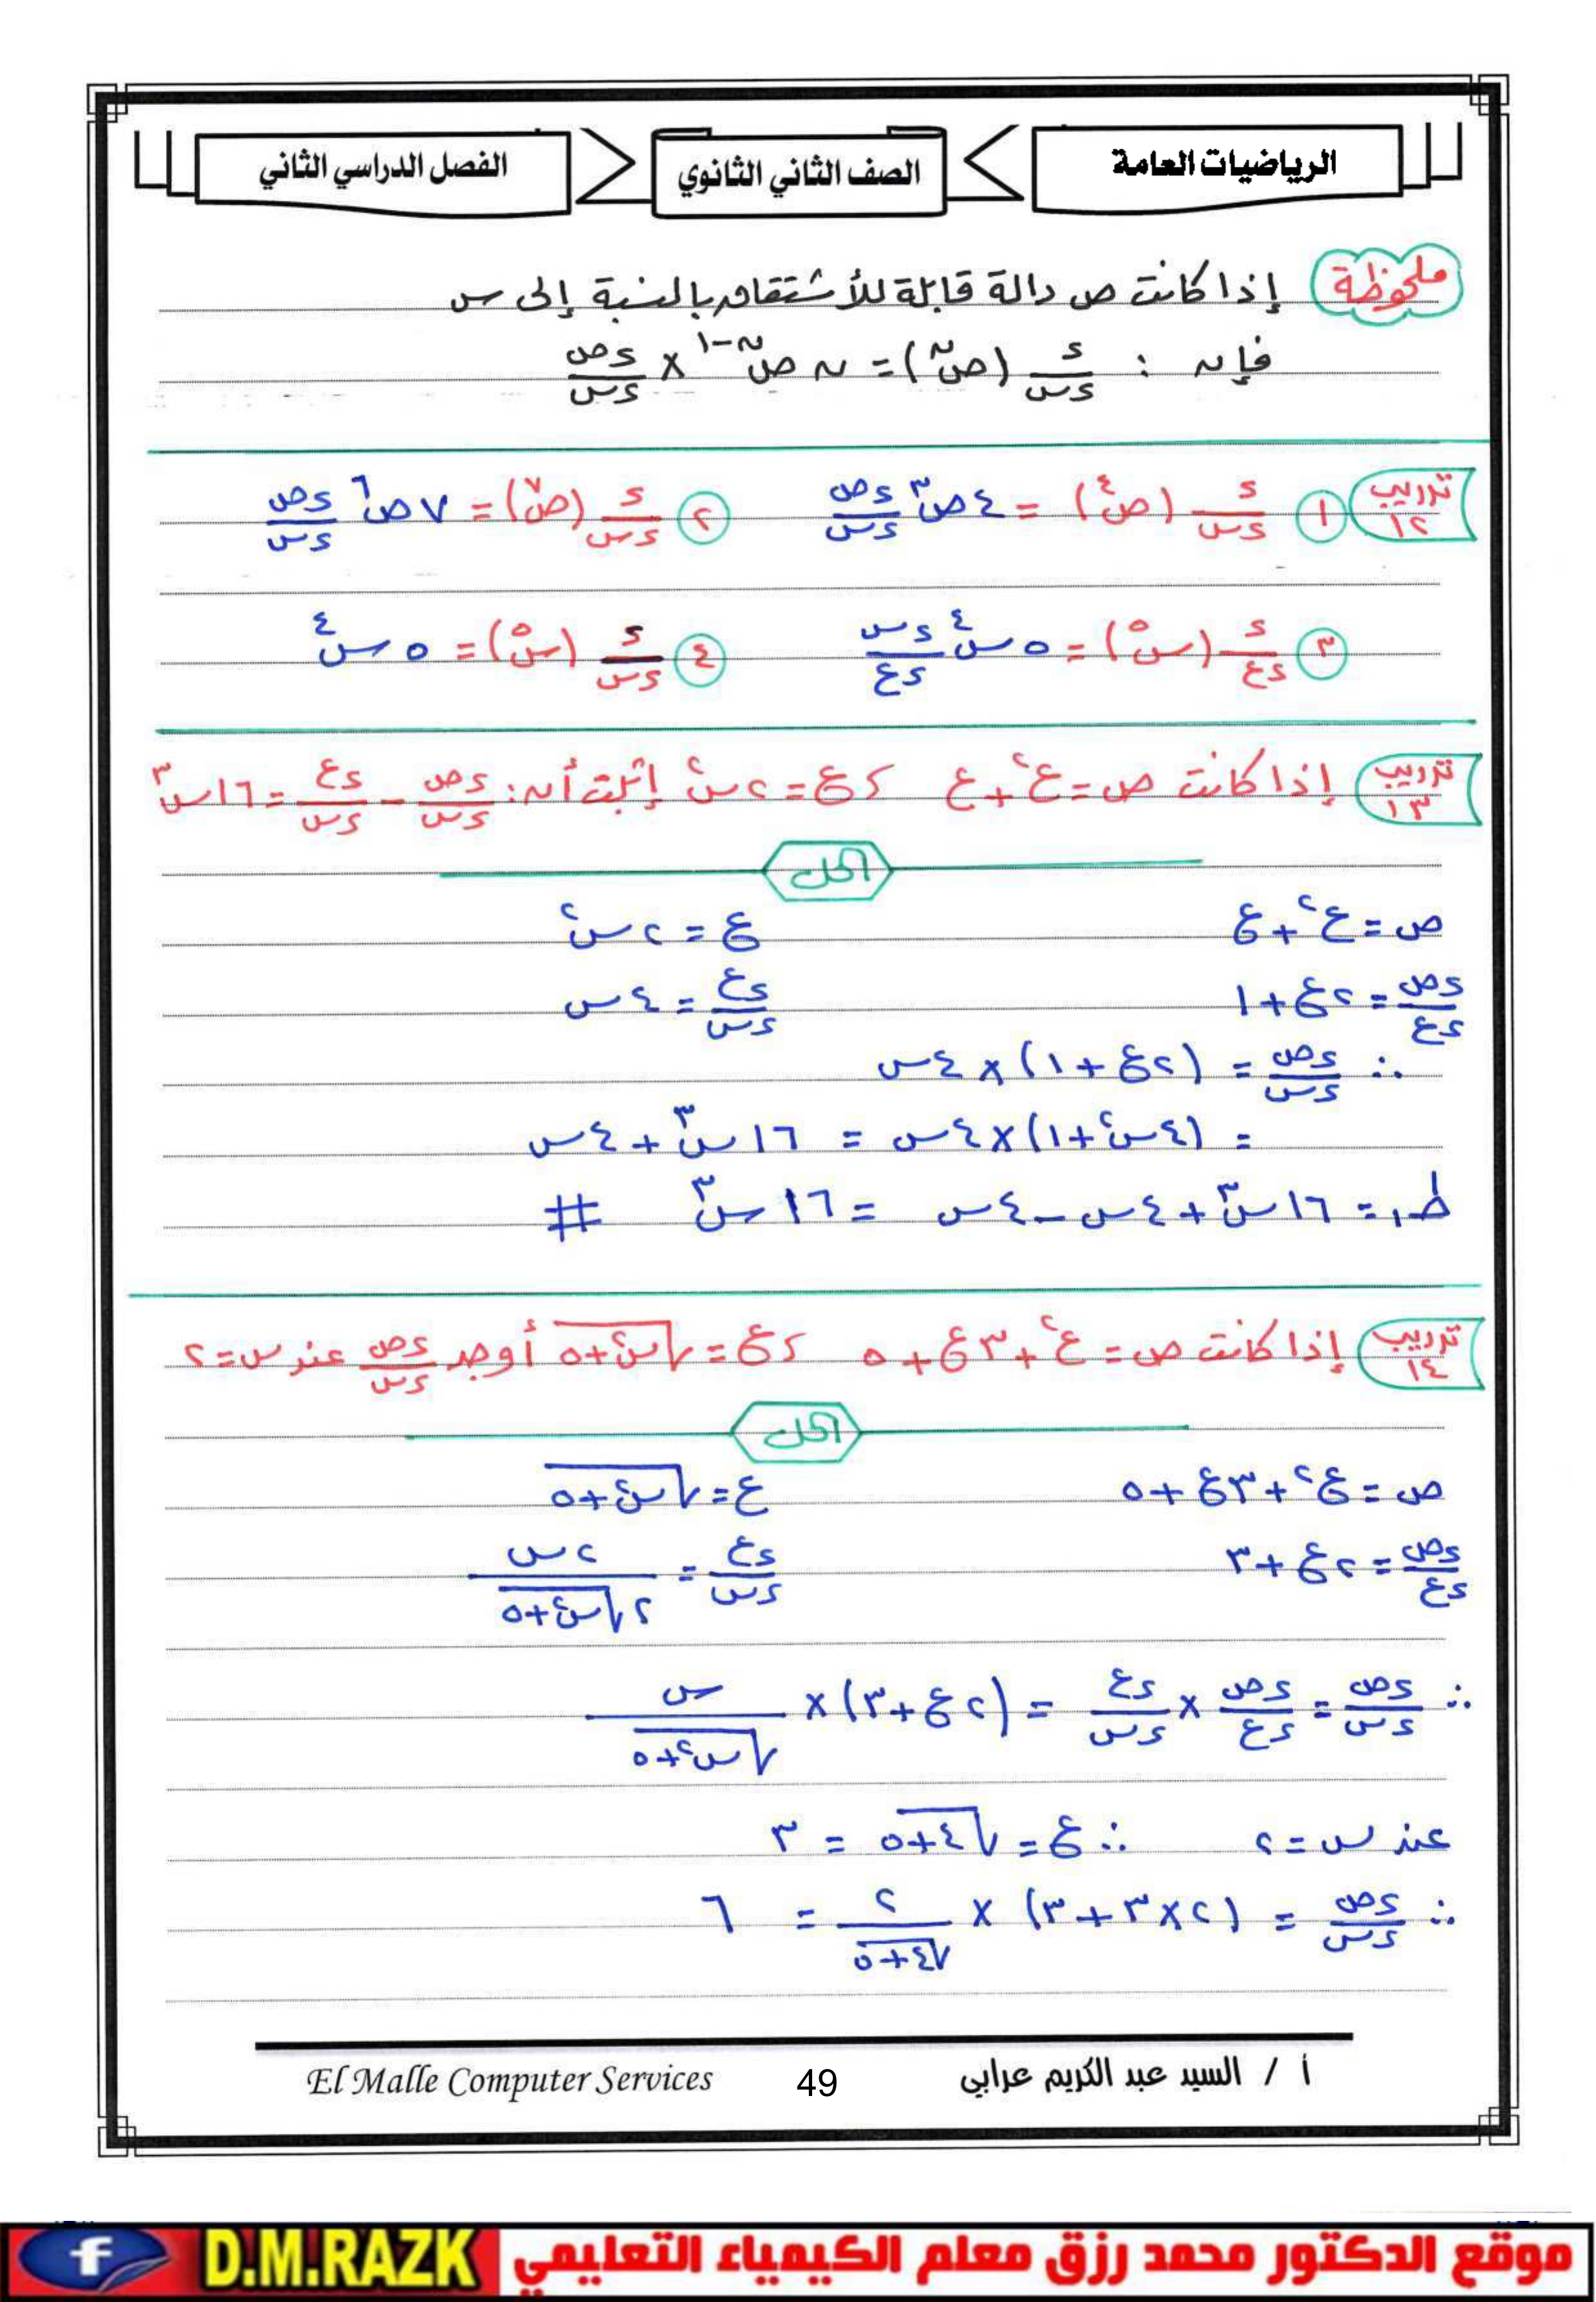 الرياضيات العامة
الصف الثاني الثانوي
الفصل الدراسي الثاني
ملحوظة إذا كانت ص دالة قابلة للأشتقاق بالنسبة إلى س
فإن : ء/ءس (ص^ن) = ن ص^(ن-١) × ءص/ءس
تدريب ١٢ ① ء/ءس (ص^٤) = ٤ص^٣ ءص/ءس ② ء/ءس (ص^٧) = ٧ص^٦ ءص/ءس
③ ء/ءع (س^٥) = ٥س^٤ ءس/ءع ④ ء/ءس (س^٥) = ٥س^٤
تدريب ١٣ إذا كانت ص = ع^٢ + ع ، ع = ٢س^٢ إثبت أن : ءص/ءس - ءع/ءس = ١٦س^٣
الحل
ص = ع^٢ + ع ع = ٢س^٢
ءص/ءع = ٢ع + ١ ءع/ءس = ٤س
∴ ءص/ءس = (٢ع + ١) × ٤س
= (٤س^٢ + ١) × ٤س = ١٦س^٣ + ٤س
ط١ = ١٦س^٣ + ٤س - ٤س = ١٦س^٣ #
تدريب ١٤ إذا كانت ص = ع^٢ + ٣ع + ٥ ، ع = √(س^٢ + ٥) أوجد ءص/ءس عند س = ٢
الحل
ص = ع^٢ + ٣ع + ٥ ع = √(س^٢ + ٥)
ءص/ءع = ٢ع + ٣ ءع/ءس = ٢س / ٢√(س^٢ + ٥)
∴ ءص/ءس = ءص/ءع × ءع/ءس = (٢ع + ٣) × س / √(س^٢ + ٥)
عند س = ٢ ∴ ع = √(٤ + ٥) = ٣
∴ ءص/ءس = (٢×٣ + ٣) × ٢ / √(٤ + ٥) = ٦
أ / السيد عبد الكريم عرابي 49 El Malle Computer Services
f D.M.RAZK موقع الدكتور محمد رزق معلم الكيمياء التعليمي